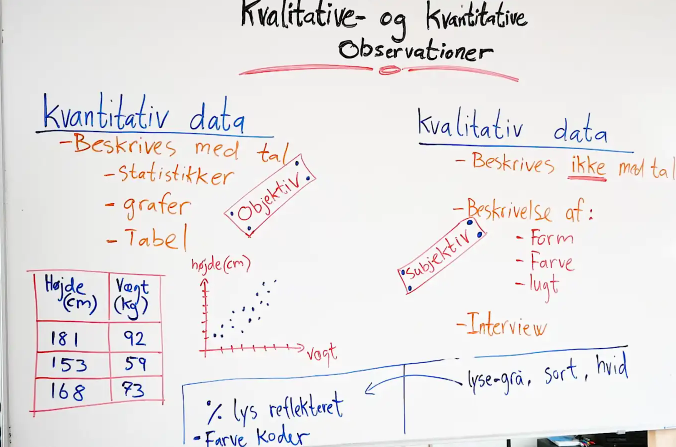 Kvalitative- og kvantitative
Observationer
kvantitativ data
-Beskrives med tal
-Statistikker
- grafer
- Tabel
Objektiv
Højde (cm) Vægt (kg)
181 92
153 59
168 73
højde(cm)
vægt
kvalitativ data
- Beskrives ikke med tal
-Beskrivelse af:
- Form
- Farve
- lugt
Subjektiv
-Interview
% lys reflekteret
- Farve koder
lyse-grå, sort, hvid